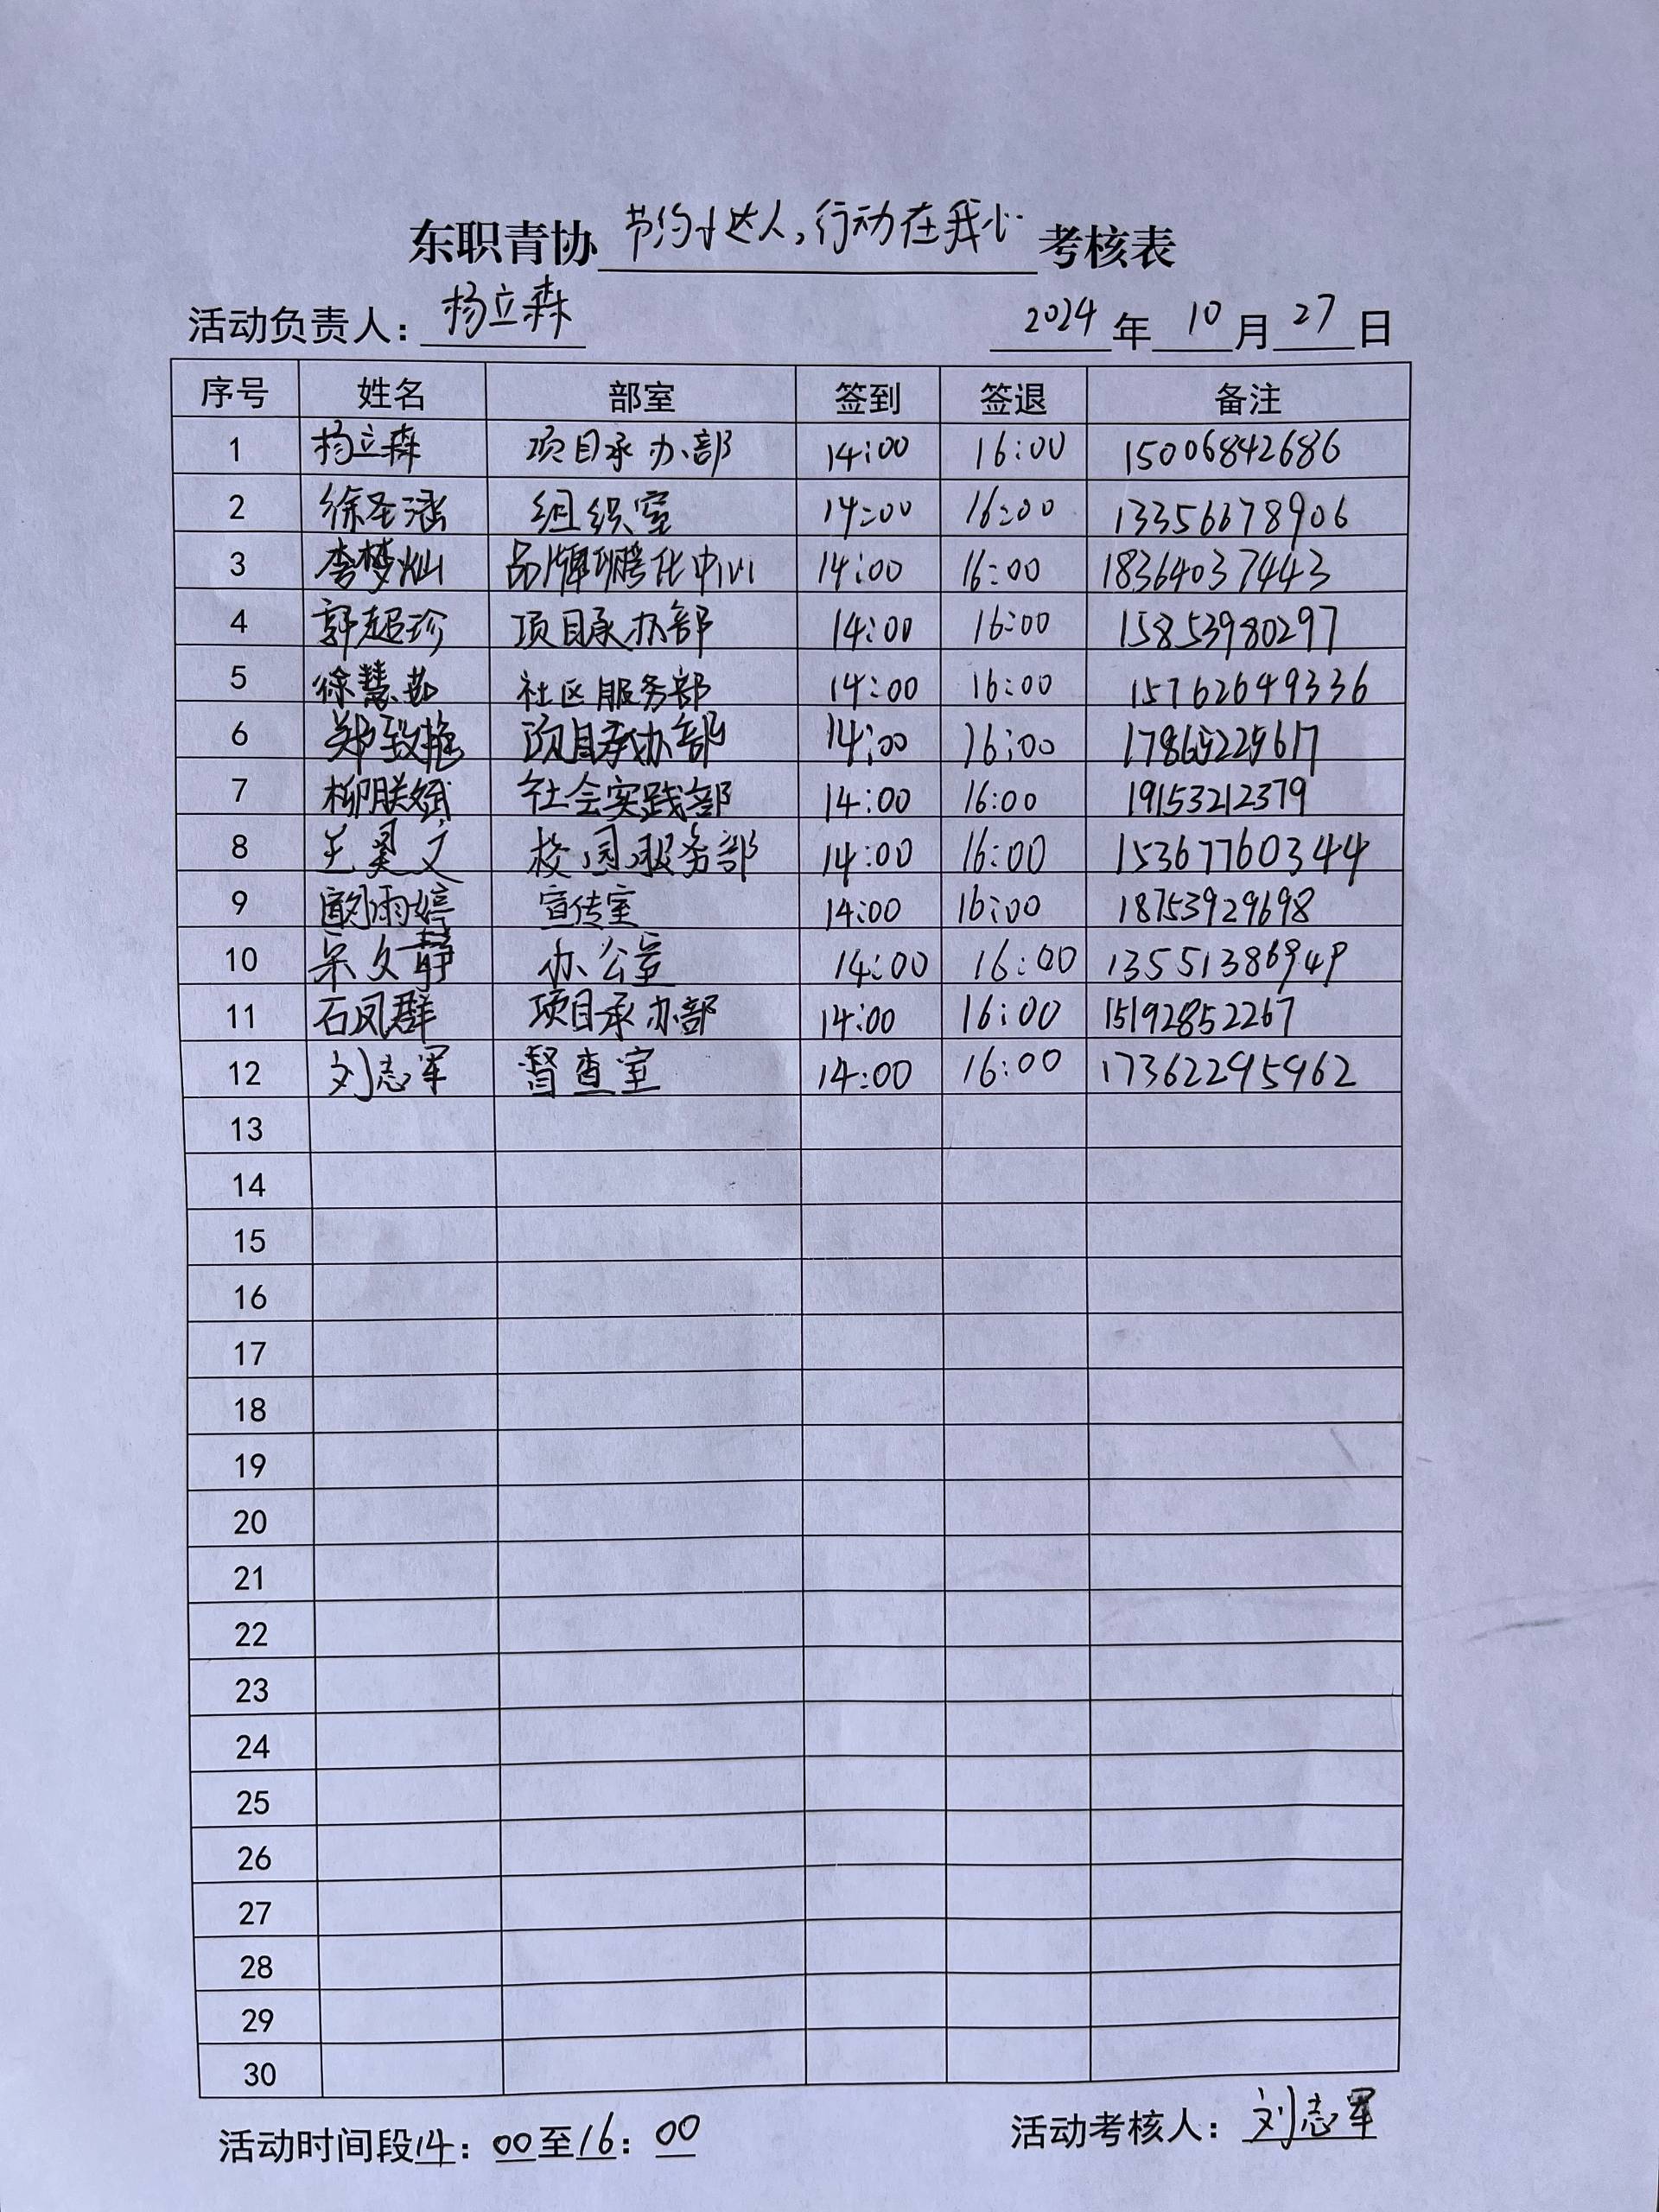 东职青协 节约小达人,行动在我心 考核表
活动负责人: 杨立森 2024 年 10 月 27 日
序号 姓名 部室 签到 签退 备注
1 杨立森 项目承办部 14:00 16:00 15006842686
2 徐圣涵 组织室 14:00 16:00 13356678906
3 李梦灿 品牌孵化中心 14:00 16:00 18364037443
4 郭超珍 项目承办部 14:00 16:00 15853980297
5 徐慧 社区服务部 14:00 16:00 15762649336
6 郑致艳 项目承办部 14:00 16:00
7 柳朕斌 社会实践部 14:00 16:00 19153212379
8 王昊文 校园服务部 14:00 16:00 15367760344
9 雨婷 宣传室 14:00 16:00 18753929698
10 宋文静 办公室 14:00 16:00
11 石凤群 项目承办部 14:00 16:00 15192852267
12 刘志军 督查室 14:00 16:00 17362295962
13
14
15
16
17
18
19
20
21
22
23
24
25
26
27
28
29
30
活动时间段14:00至16:00 活动考核人: 刘志军